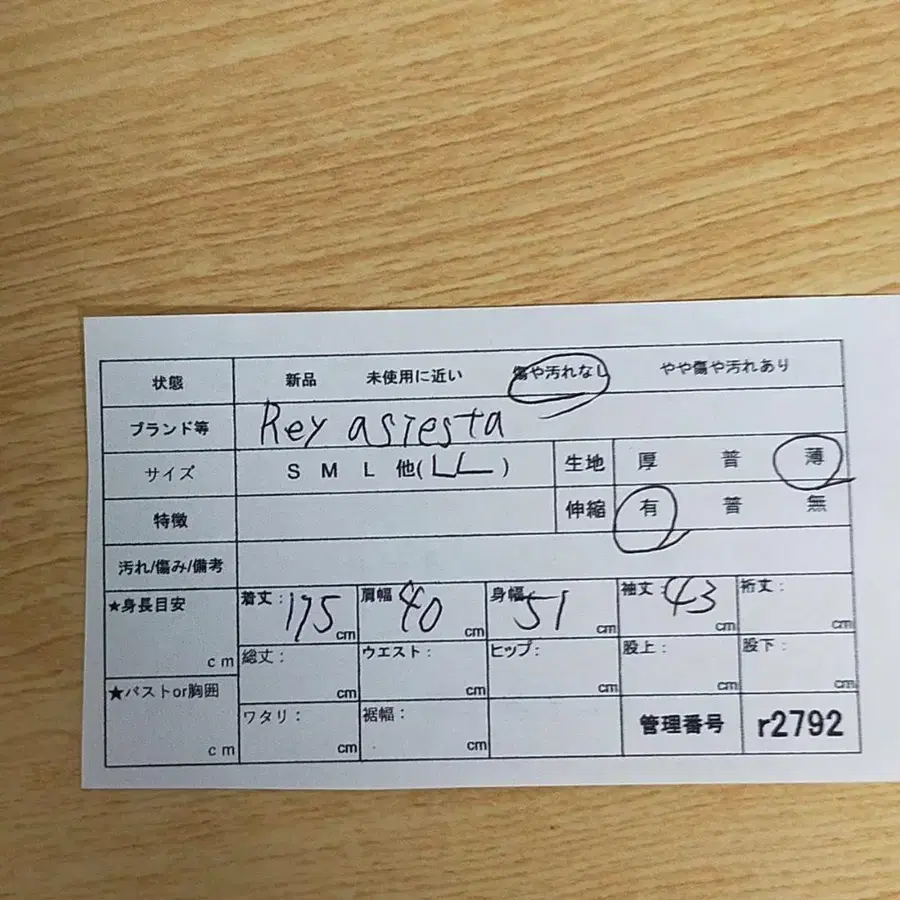 状態 新品 未使用に近い 傷や汚れなし やや傷や汚れあり
ブランド等 Rey asiesta
サイズ S M L 他(LL) 生地 厚 普 薄
特徴 伸縮 有 普 無
汚れ/傷み/備考
★身長目安 cm 着丈: 175 cm 肩幅 40 cm 身幅 51 cm 袖丈: 43 cm 裄丈: cm
総丈: cm ウエスト: cm ヒップ: cm 股上: cm 股下: cm
★バストor胸囲 cm ワタリ: cm 裾幅: cm 管理番号 r2792